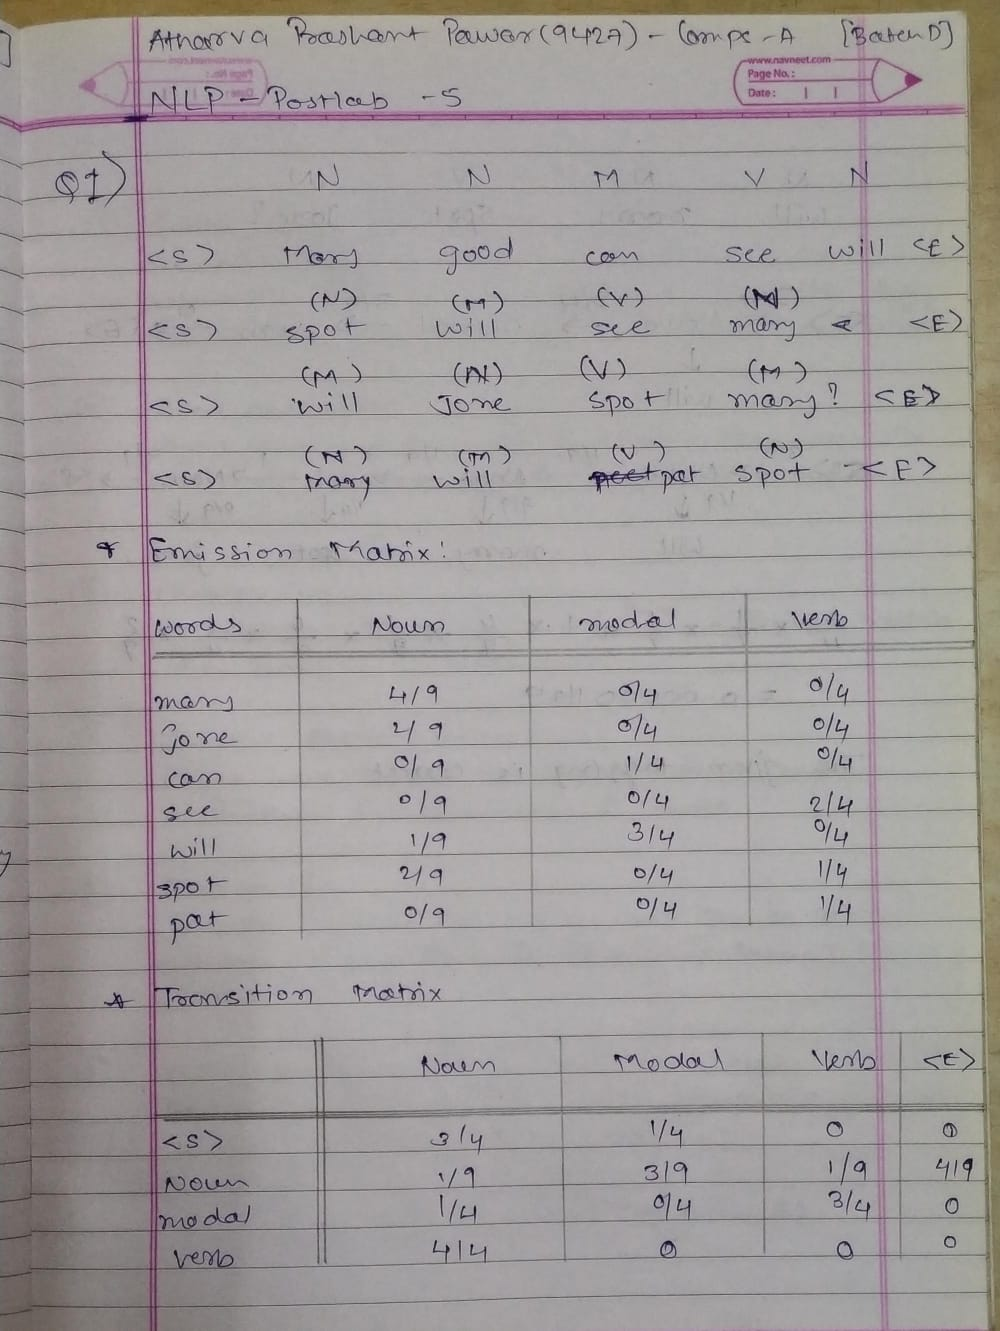 Atharva Prashant Pawar (9427) - Comps - A [Batch D]
www.navneet.com
Page No. :
Date :
NLP - Postlab - 5
Q1) N N M V N
<S> Mary good can see will <E>
(N) (M) (V) (N)
<S> spot will see mary <E>
(M) (N) (V) (M)
<S> will Jone spot mary? <E>
(N) (M) (V) (N)
<S> mary will pat spot - <E>
* Emission Matrix:
words Noun modal Verb
mary 4/9 0/4 0/4
Jone 2/9 0/4 0/4
can 0/9 1/4 0/4
see 0/9 0/4 2/4
will 1/9 3/4 0/4
spot 2/9 0/4 1/4
pat 0/9 0/4 1/4
* Transition Matrix
Noun Modal Verb <E>
<S> 3/4 1/4 0 0
Noun 1/9 3/9 1/9 4/9
modal 1/4 0/4 3/4 0
verb 4/4 0 0 0